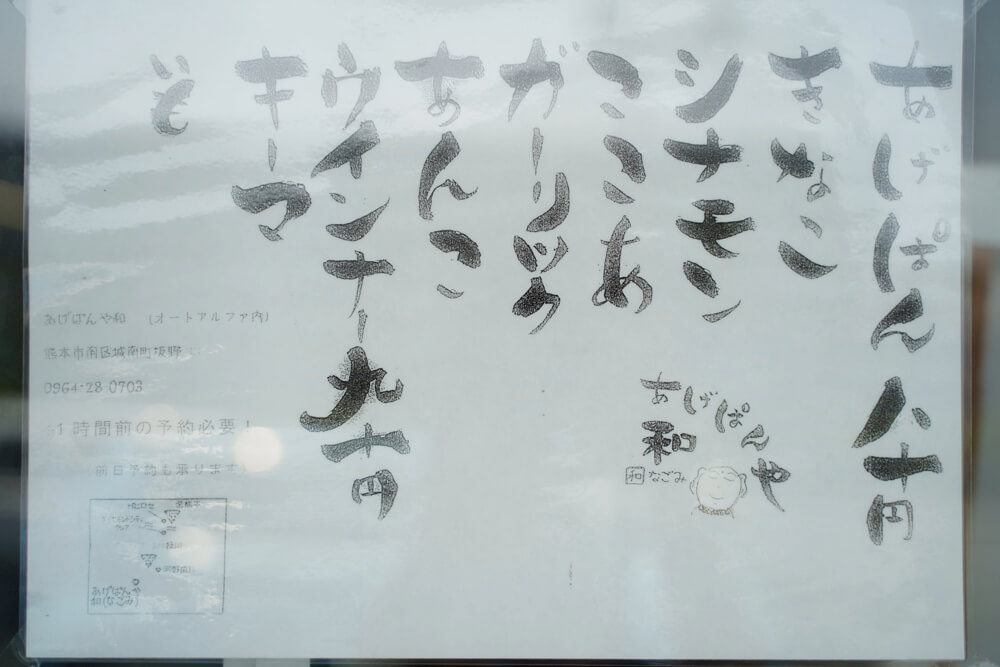 あげぱん 八十円
きなこ
シナモン
ここあ
ガーリック
あんこ
ウインナー 九十円
キーマ
いも
あげぱんや
和
和 なごみ
あげぱんや和 (オートアルファ内)
熊本市南区城南町坂野
0964-28-0703
1時間前の予約必要!
前日予約も承ります
あげぱんや
和(なごみ)